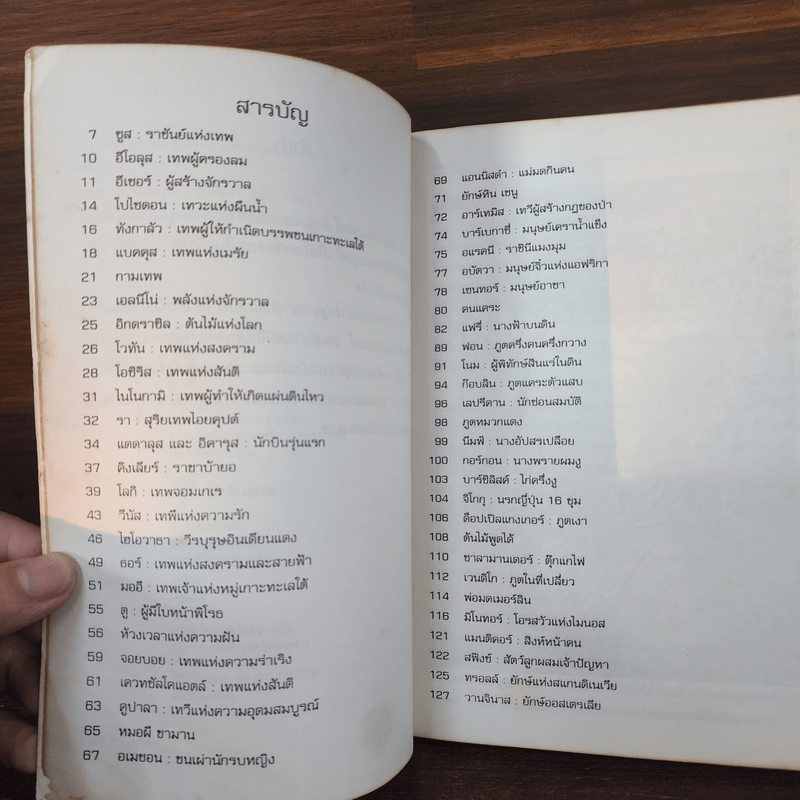 สารบัญ
7 ซูส : ราชันย์แห่งเทพ
10 อีโอลุส : เทพผู้ครองลม
11 อีเธอร์ : ผู้สร้างจักรวาล
14 โปไซดอน : เทวะแห่งผืนน้ำ
16 ทังกาลัว : เทพผู้ให้กำเนิดบรรพชนเกาะทะเลใต้
18 แบคคุส : เทพแห่งเมรัย
21 กามเทพ
23 เอลนีโน่ : พลังแห่งจักรวาล
25 อิกดราซิล : ต้นไม้แห่งโลก
26 โวทัน : เทพแห่งสงคราม
28 โอซิริส : เทพแห่งสันติ
31 ไนโนกามิ : เทพผู้ทำให้เกิดแผ่นดินไหว
32 รา : สุริยเทพไอยคุปต์
34 แดดาลุส และ อิคารุส : นักบินรุ่นแรก
37 คิงเลียร์ : ราชาบ้ายอ
39 โลกิ : เทพจอมเกเร
43 วีนัส : เทพีแห่งความรัก
46 ไฮโอวาธา : วีรบุรุษอินเดียนแดง
49 ธอร์ : เทพแห่งสงครามและสายฟ้า
51 มออี : เทพเจ้าแห่งหมู่เกาะทะเลใต้
55 ตู : ผู้มีใบหน้าพิโรธ
56 ห้วงเวลาแห่งความฝัน
59 จอยบอย : เทพแห่งความร่าเริง
61 เควทซัลโคแอตล์ : เทพแห่งสันติ
63 คูปาลา : เทวีแห่งความอุดมสมบูรณ์
65 หมอผี ชามาน
67 อเมซอน : ชนเผ่านักรบหญิง
69 แอนนิสดำ : แม่มดกินคน
71 ยักษ์หิน เชนู
72 อาร์เทมิส : เทวีผู้สร้างกฎของป่า
74 บาร์เบกาซี่ : มนุษย์เคราน้ำแข็ง
75 อแรคนี : ราชินีแมงมุม
77 อบัตวา : มนุษย์จิ๋วแห่งแอฟริกา
78 เซนทอร์ : มนุษย์อาชา
80 คนแคระ
82 แฟรี่ : นางฟ้าบนดิน
89 ฟอน : ภูตครึ่งคนครึ่งกวาง
91 โนม : ผู้พิทักษ์สินแร่ในดิน
94 ก๊อบลิน : ภูตแคระตัวแสบ
96 เลปรีคาน : นักซ่อนสมบัติ
98 ภูตหมวกแดง
99 นีมฟ์ : นางอัปสรเปลือย
100 กอร์กอน : นางพรายผมงู
103 บาร์ซิลิสค์ : ไก่ครึ่งงู
104 จิโกกุ : นรกญี่ปุ่น 16 ขุม
106 ด็อปเปิลแกงเกอร์ : ภูตเงา
108 ต้นไม้พูดได้
110 ซาลามานเดอร์ : ตุ๊กแกไฟ
112 เวนดิโก : ภูตในที่เปลี่ยว
114 พ่อมดเมอร์ลิน
116 มิโนทอร์ : โอรสวัวแห่งไมนอส
121 แมนติคอร์ : สิงห์หน้าคน
122 สฟิงซ์ : สัตว์ลูกผสมเจ้าปัญหา
125 ทรอลล์ : ยักษ์แห่งสแกนดิเนเวีย
127 วานจินาส : ยักษ์ออสเตรเลีย